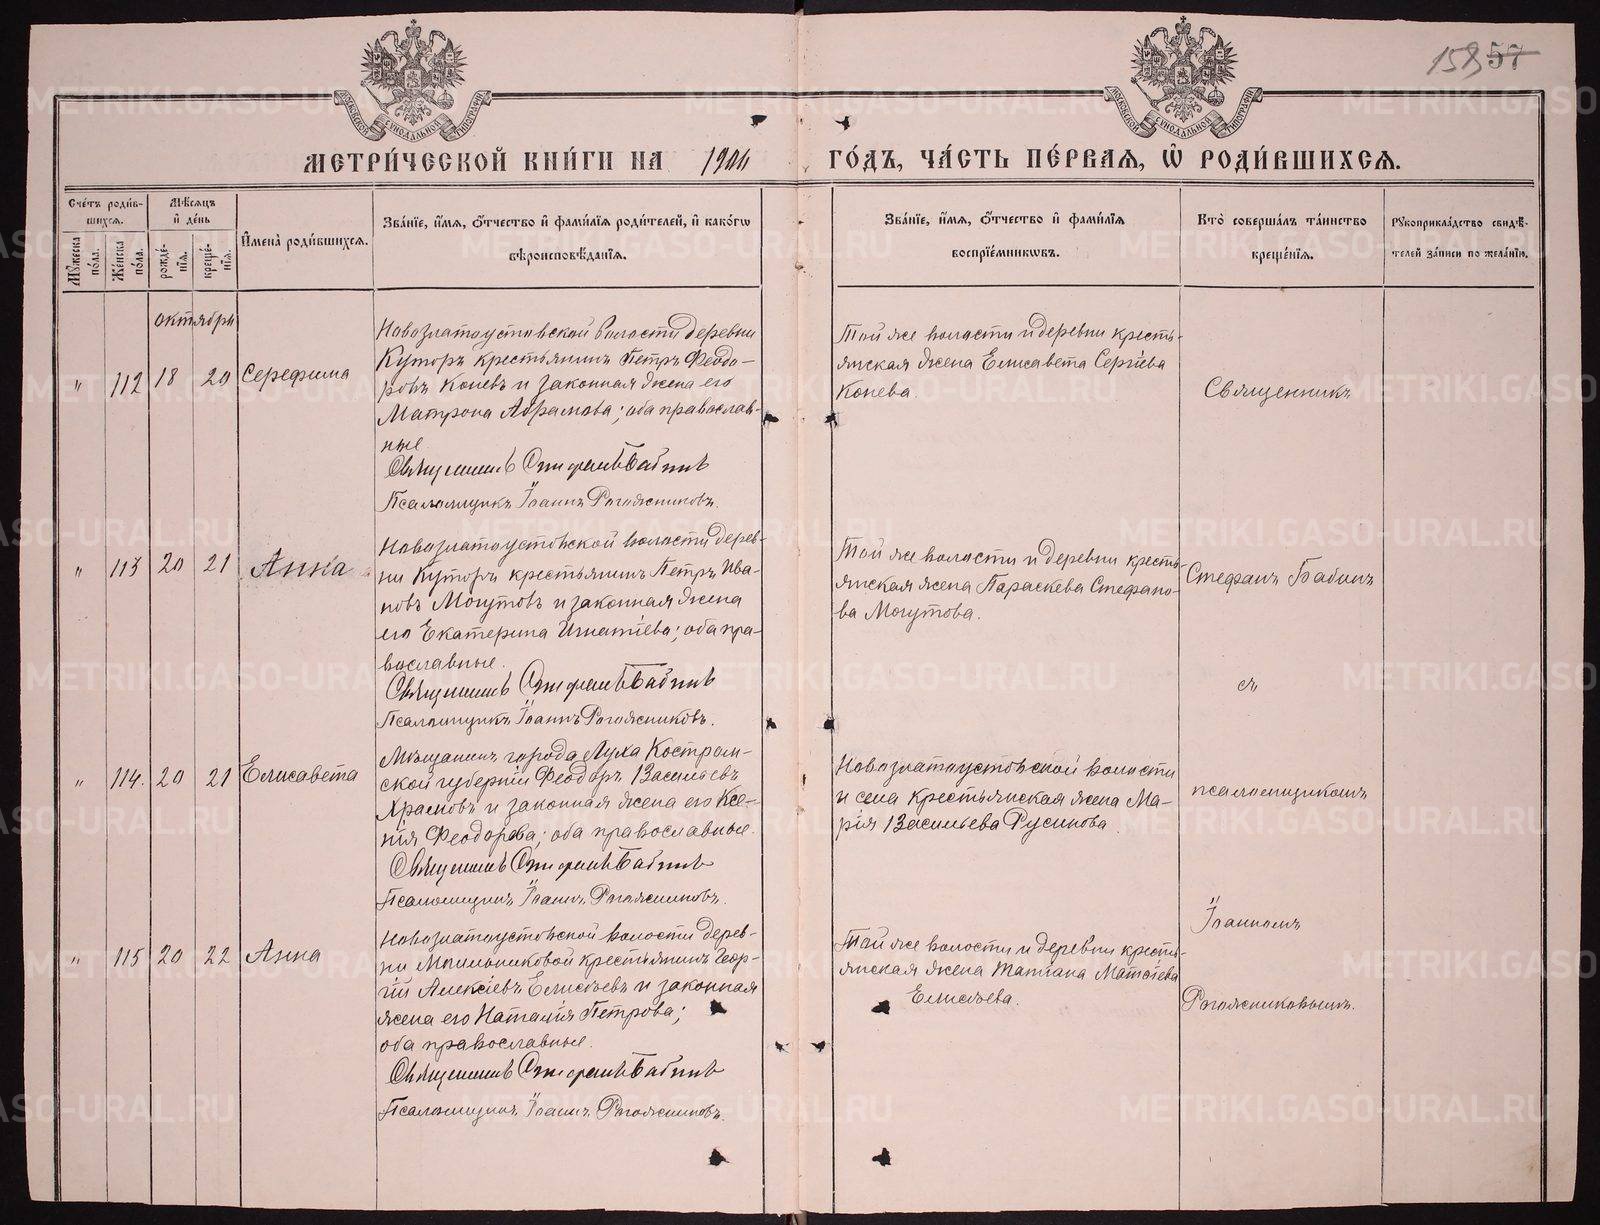 МОСКОВСКОЙ СѴНОДАЛЬНОЙ ТИПОГРАФІИ
МОСКОВСКОЙ СѴНОДАЛЬНОЙ ТИПОГРАФІИ
57
МЕТРИ́ЧЕСКОЙ КНИ́ГИ НА
ГО́ДЪ, ЧА́СТЬ ПЕ́РВАЯ, Ѡ҆ РОДИ́ВШИХСЯ.
Сче́тъ роди́в-
шихся.
Мѣ́сяцъ
и҆ де́нь
Мꙋ́жеска по́ла.
Же́нска по́ла.
рожде́-
нїя.
креще́-
нїя.
И҆мена̀ роди́вшихся.
Зва́нїе, и҆́мя, ѻ҆́тчество и҆ фами́лїя роди́телей, и҆ како́гѡ
вѣроисповѣ́данїя.
Зва́нїе, и҆́мя, ѻ҆́тчество и҆ фами́лїя
воспрїе́мникѡвъ.
Кто̀ соверша́лъ та́инство
креще́нїя.
Рꙋкоприкла́дство свидѣ́-
телей за́писи по жела́нїю.
октябрь
" 112 18 20 Серефима
Новозлатоустовской волости деревни
Куторъ крестьянинъ Петръ Феодо-
ровъ Коневъ и законная жена его
Матрона Абрамова; оба православ-
ные
Священникъ Стефанъ Бабинъ
Псаломщикъ Іоаннъ Рогожниковъ.
Той же волости и деревни кресть-
янская жена Елисавета Сергіева
Конева.
Священникъ
" 113 20 21 Анна
Новозлатоустовской волости дерев-
ни Куторъ крестьянинъ Петръ Ива-
новъ Могутовъ и законная жена
его Екатерина Игнатіева; оба пра-
вославные.
Священникъ Стефанъ Бабинъ
Псаломщикъ Іоаннъ Рогожниковъ.
Той же волости и деревни кресть-
янская жена Параскева Стефано-
ва Могутова.
Стефанъ Бабинъ
съ
" 114. 20 21 Елисавета
Мѣщанинъ города Луха Костром-
ской губерніи Феодоръ Васильевъ
Храмовъ и законная жена его Ксе-
нія Феодорова; оба православные.
Священникъ Стефанъ Бабинъ
Псаломщикъ Іоаннъ Рогожниковъ.
Новозлатоустовской волости
и села крестьянская жена Ма-
рія Васильева Русинова
псаломщикомъ
Іоанномъ
" 115 20 22 Анна
Новозлатоустовской волости дерев-
ни Мыльниковой крестьянинъ Геор-
гій Алексіевъ Елисѣевъ и законная
жена его Наталія Петрова;
оба православные.
Священникъ Стефанъ Бабинъ
Псаломщикъ Іоаннъ Рогожниковъ.
Той же волости и деревни кресть-
янская жена Татіана Матѳіева
Елисѣева.
Рогожниковымъ.
METRIKI.GASO-URAL.RU